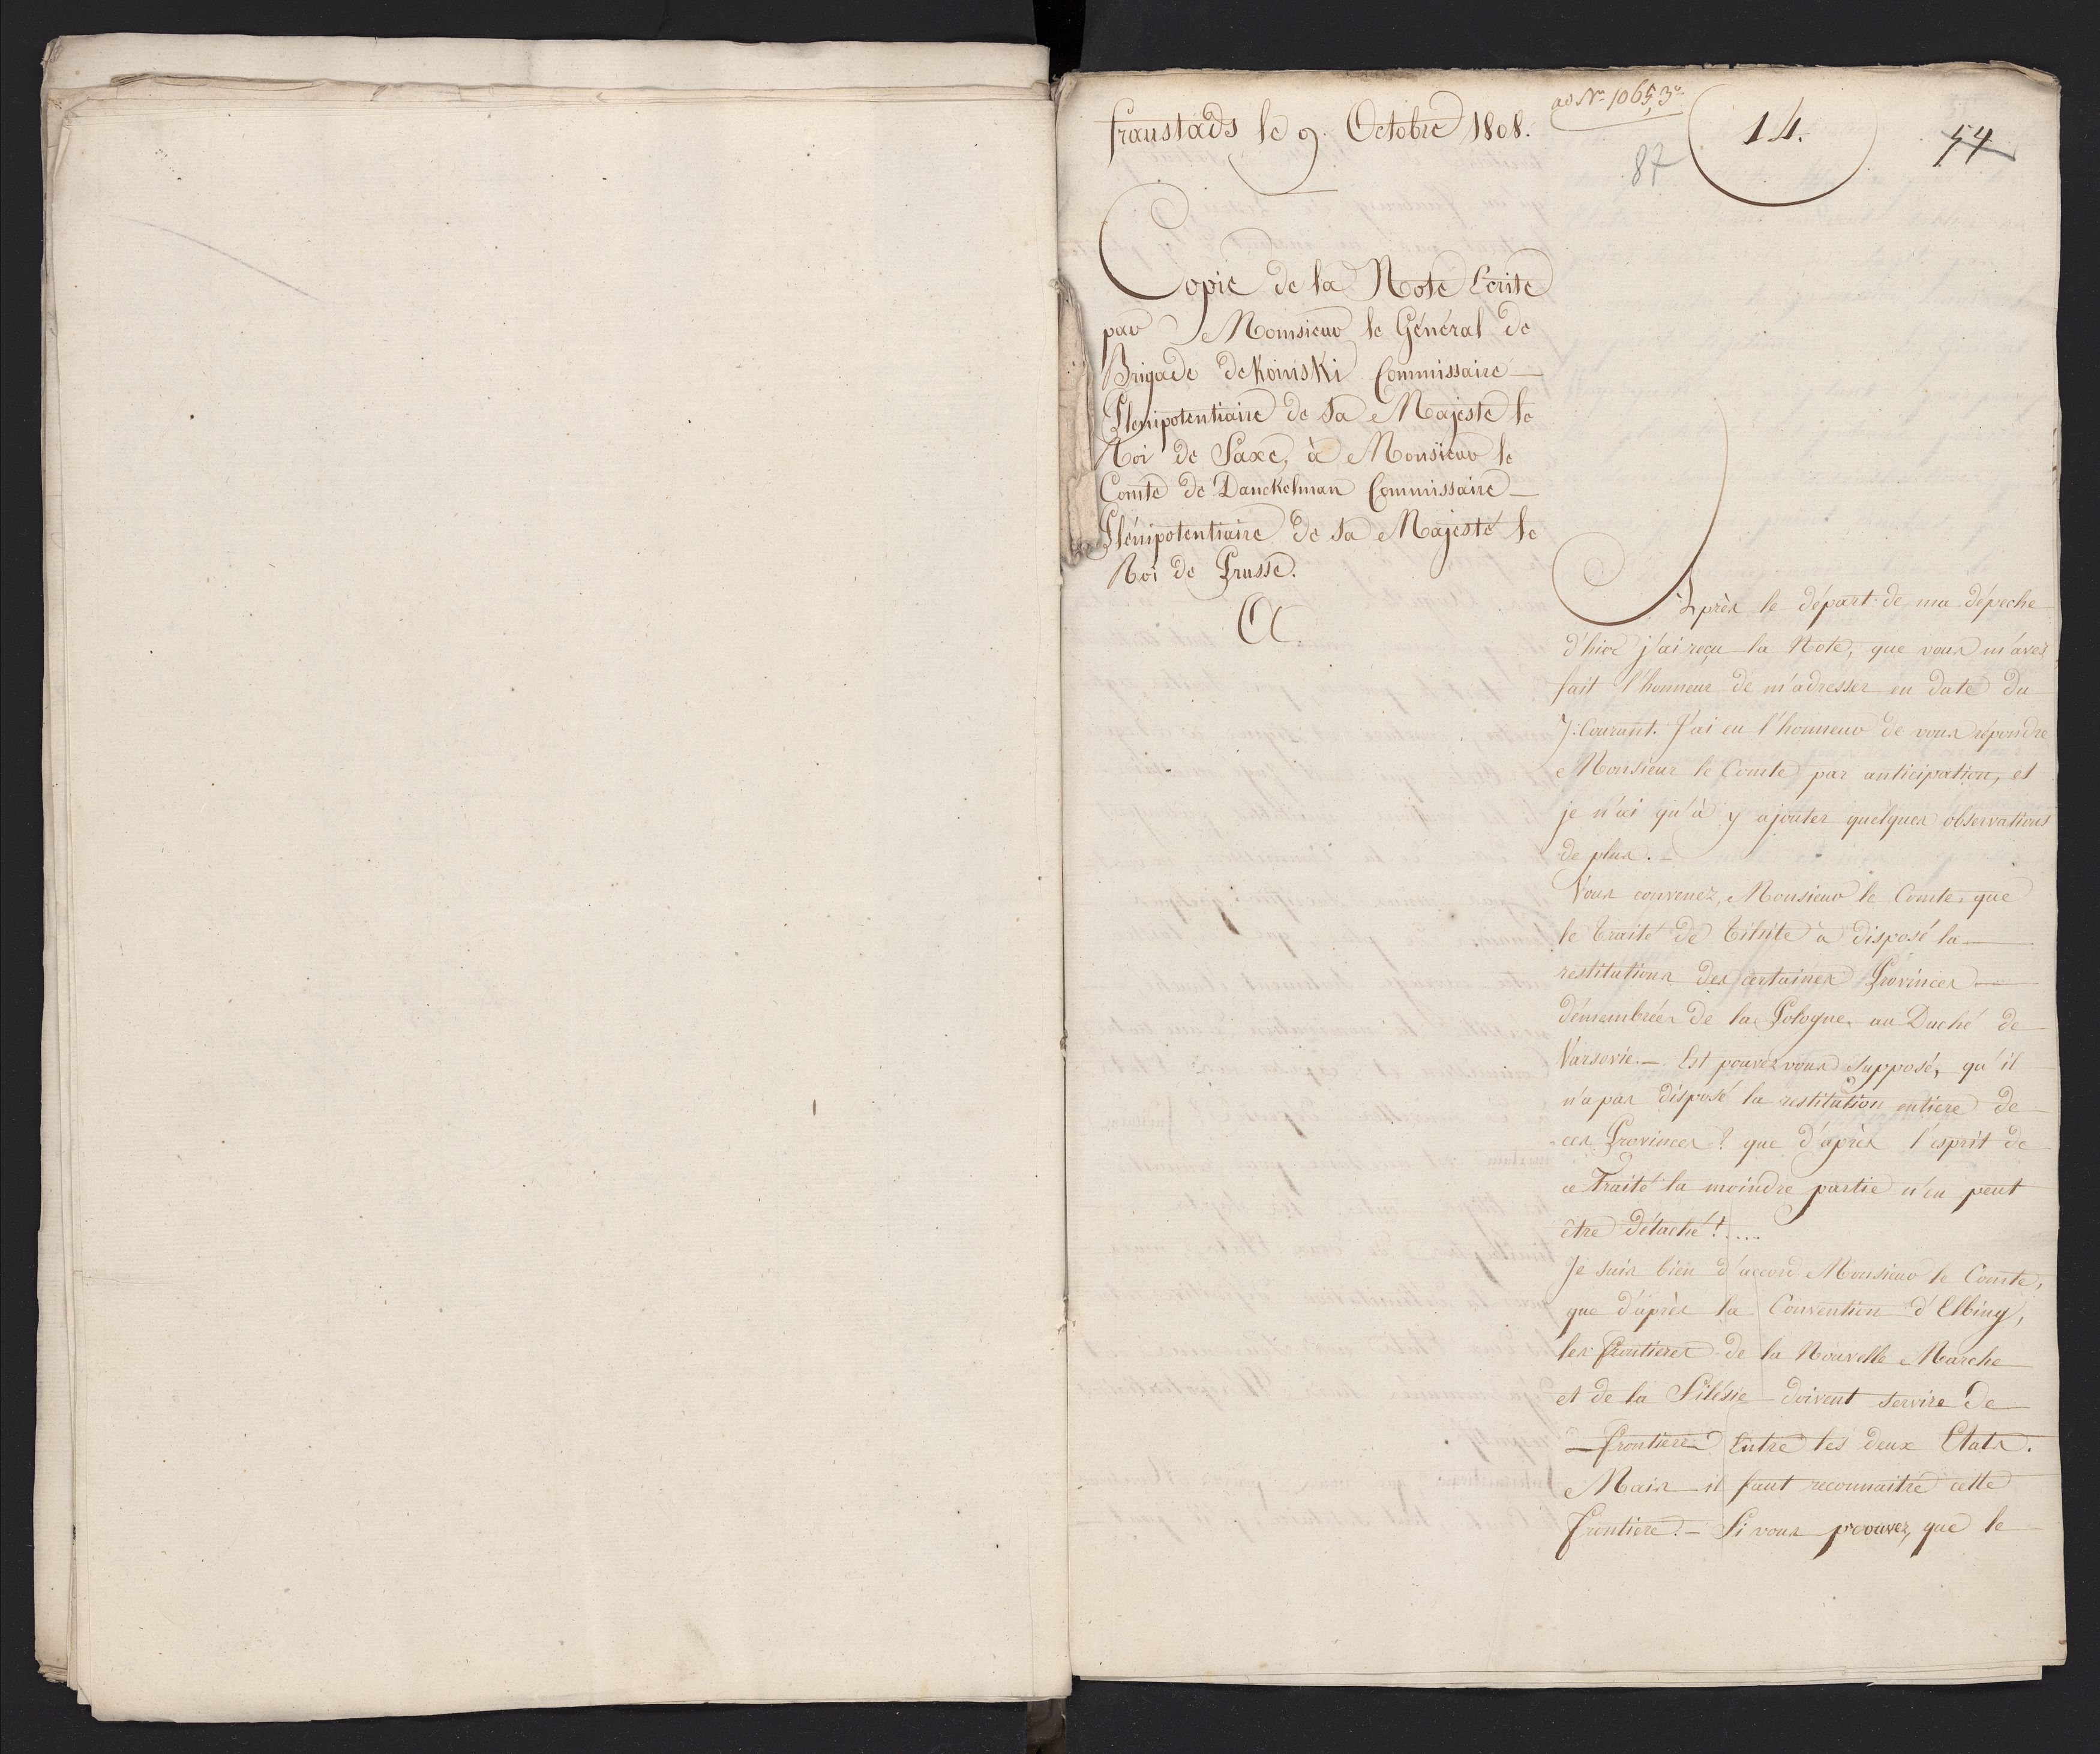 fraustads le 9. Octobre 1808.
ad Nr. 1065,3c
14.
54
87
Copie de la Note Ecrite
par Monsieur le Général de
Brigade de Koinski Commissaire
Plenipotentiaire de Sa Majeste le
Roi de Saxe, à Monsieur le
Comte de Danckelman Commissaire
Plénipotentiaire de Sa Majesté le
Roi de Prusse.
Après le départ de ma dépeche
d'hier j'ai reçu la Note, que vous m'avez
fait l'honneur de m'adresser en date du
7: Courant. J'ai eu l'honneur de vous répondre
Monsieur le Comte par anticipation, et
je n'ai qu'à y ajouter quelques observations
de plus.
Vous convenez, Monsieur le Comte, que
le Traité de Tilsite a disposé la
restitutions des certaines Provinces
démembrées de la Pologne, au Duché de
Varsovie. Et pouvez vous supposé, qu'il
n'a pas disposé la restitution entiere de
ces Provinces? que d'après l'esprit de
ce Traité la moindre partie n'en peut
être détaché!....
Je suis bien d'accord Monsieur le Comte,
que d'après la Convention d'Elbing,
les frontieres de la Nouvelle Marche
et de la Silésie doivent servire de
frontieres Entre les deux Etats.
Mais il faut reconnaitre cette
frontiere. Si vous prouvez, que le